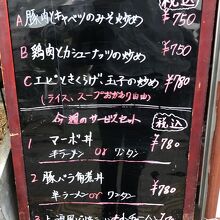 税込
A 豚肉とキャベツのみそ炒め ¥750
B 鶏肉とカシューナッツの炒め ¥750
C エビときくらげ、玉子の炒め ¥780
(ライス、スープおかわり自由)
今週のサービスセット 税込
1 マーボ丼 ¥780
半ラーメン or ワンタン
2 豚バラ角煮丼 ¥780
半ラーメン or ワンタン